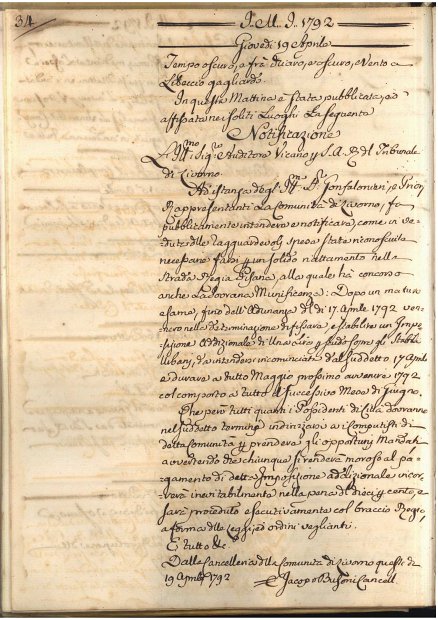 34
I. M. I. 1792
Giovedì 19 Aprile
Tempo oscuro, e frà chiaro, e oscuro, e Vento a
Libeccio gagliardo
In questa Mattina è stata pubblicata, ed
affissata nei soliti Luoghi la seguente
Notificazione
L'Ill.mo Sig.e Auditore Vicario p S. A. R. del Tribunale
di Livorno
Ad istanza degl' Ill.mi SS.ri Gonfaloniere, e Priori
Rappresentanti la Comunità di Livorno, fa
pubblicamente intendere e notificare, come in ve-
dute delle ragguardevoli spese state riconosciute
necessarie farsi p un solido riattamento nella
Strada Regia Pisana, alla quale hà concorso
anche la Sovrana Munificenza: Dopo un maturo
esame, fino dell'Adunanza del dì 17. Aprile 1792 ven-
nero nella determinazione di fissare, e stabilire un Impo-
sizione Addizionale di scudo sopra gli Stabili
Urbani, da intendersi incominciata dal suddetto 17 Aprile
e durare a tutto Maggio prossimo avvenire 1792
col comporto a tutto il successivo Mese di Giugno.
Che però tutti quanti i Possidenti di Città dovranno
nel suddetto termine indirizzarsi ai Computisti di
detta Comunità p prendere gli opportuni Mandati
avvertendo che chiunque si renderà moroso al pa-
gamento di detta Imposizione addizionale incor-
rerà inevitabilmente nella pena di dieci p cento, e
sarà proceduto esecutivamente col braccio Regio,
a forma delle Leggi, ed ordini veglianti.
E tutto &c
Dalla Cancelleria della Comunità di Livorno questo dì
19 Aprile 1792
Jacopo Busoni Cancell.